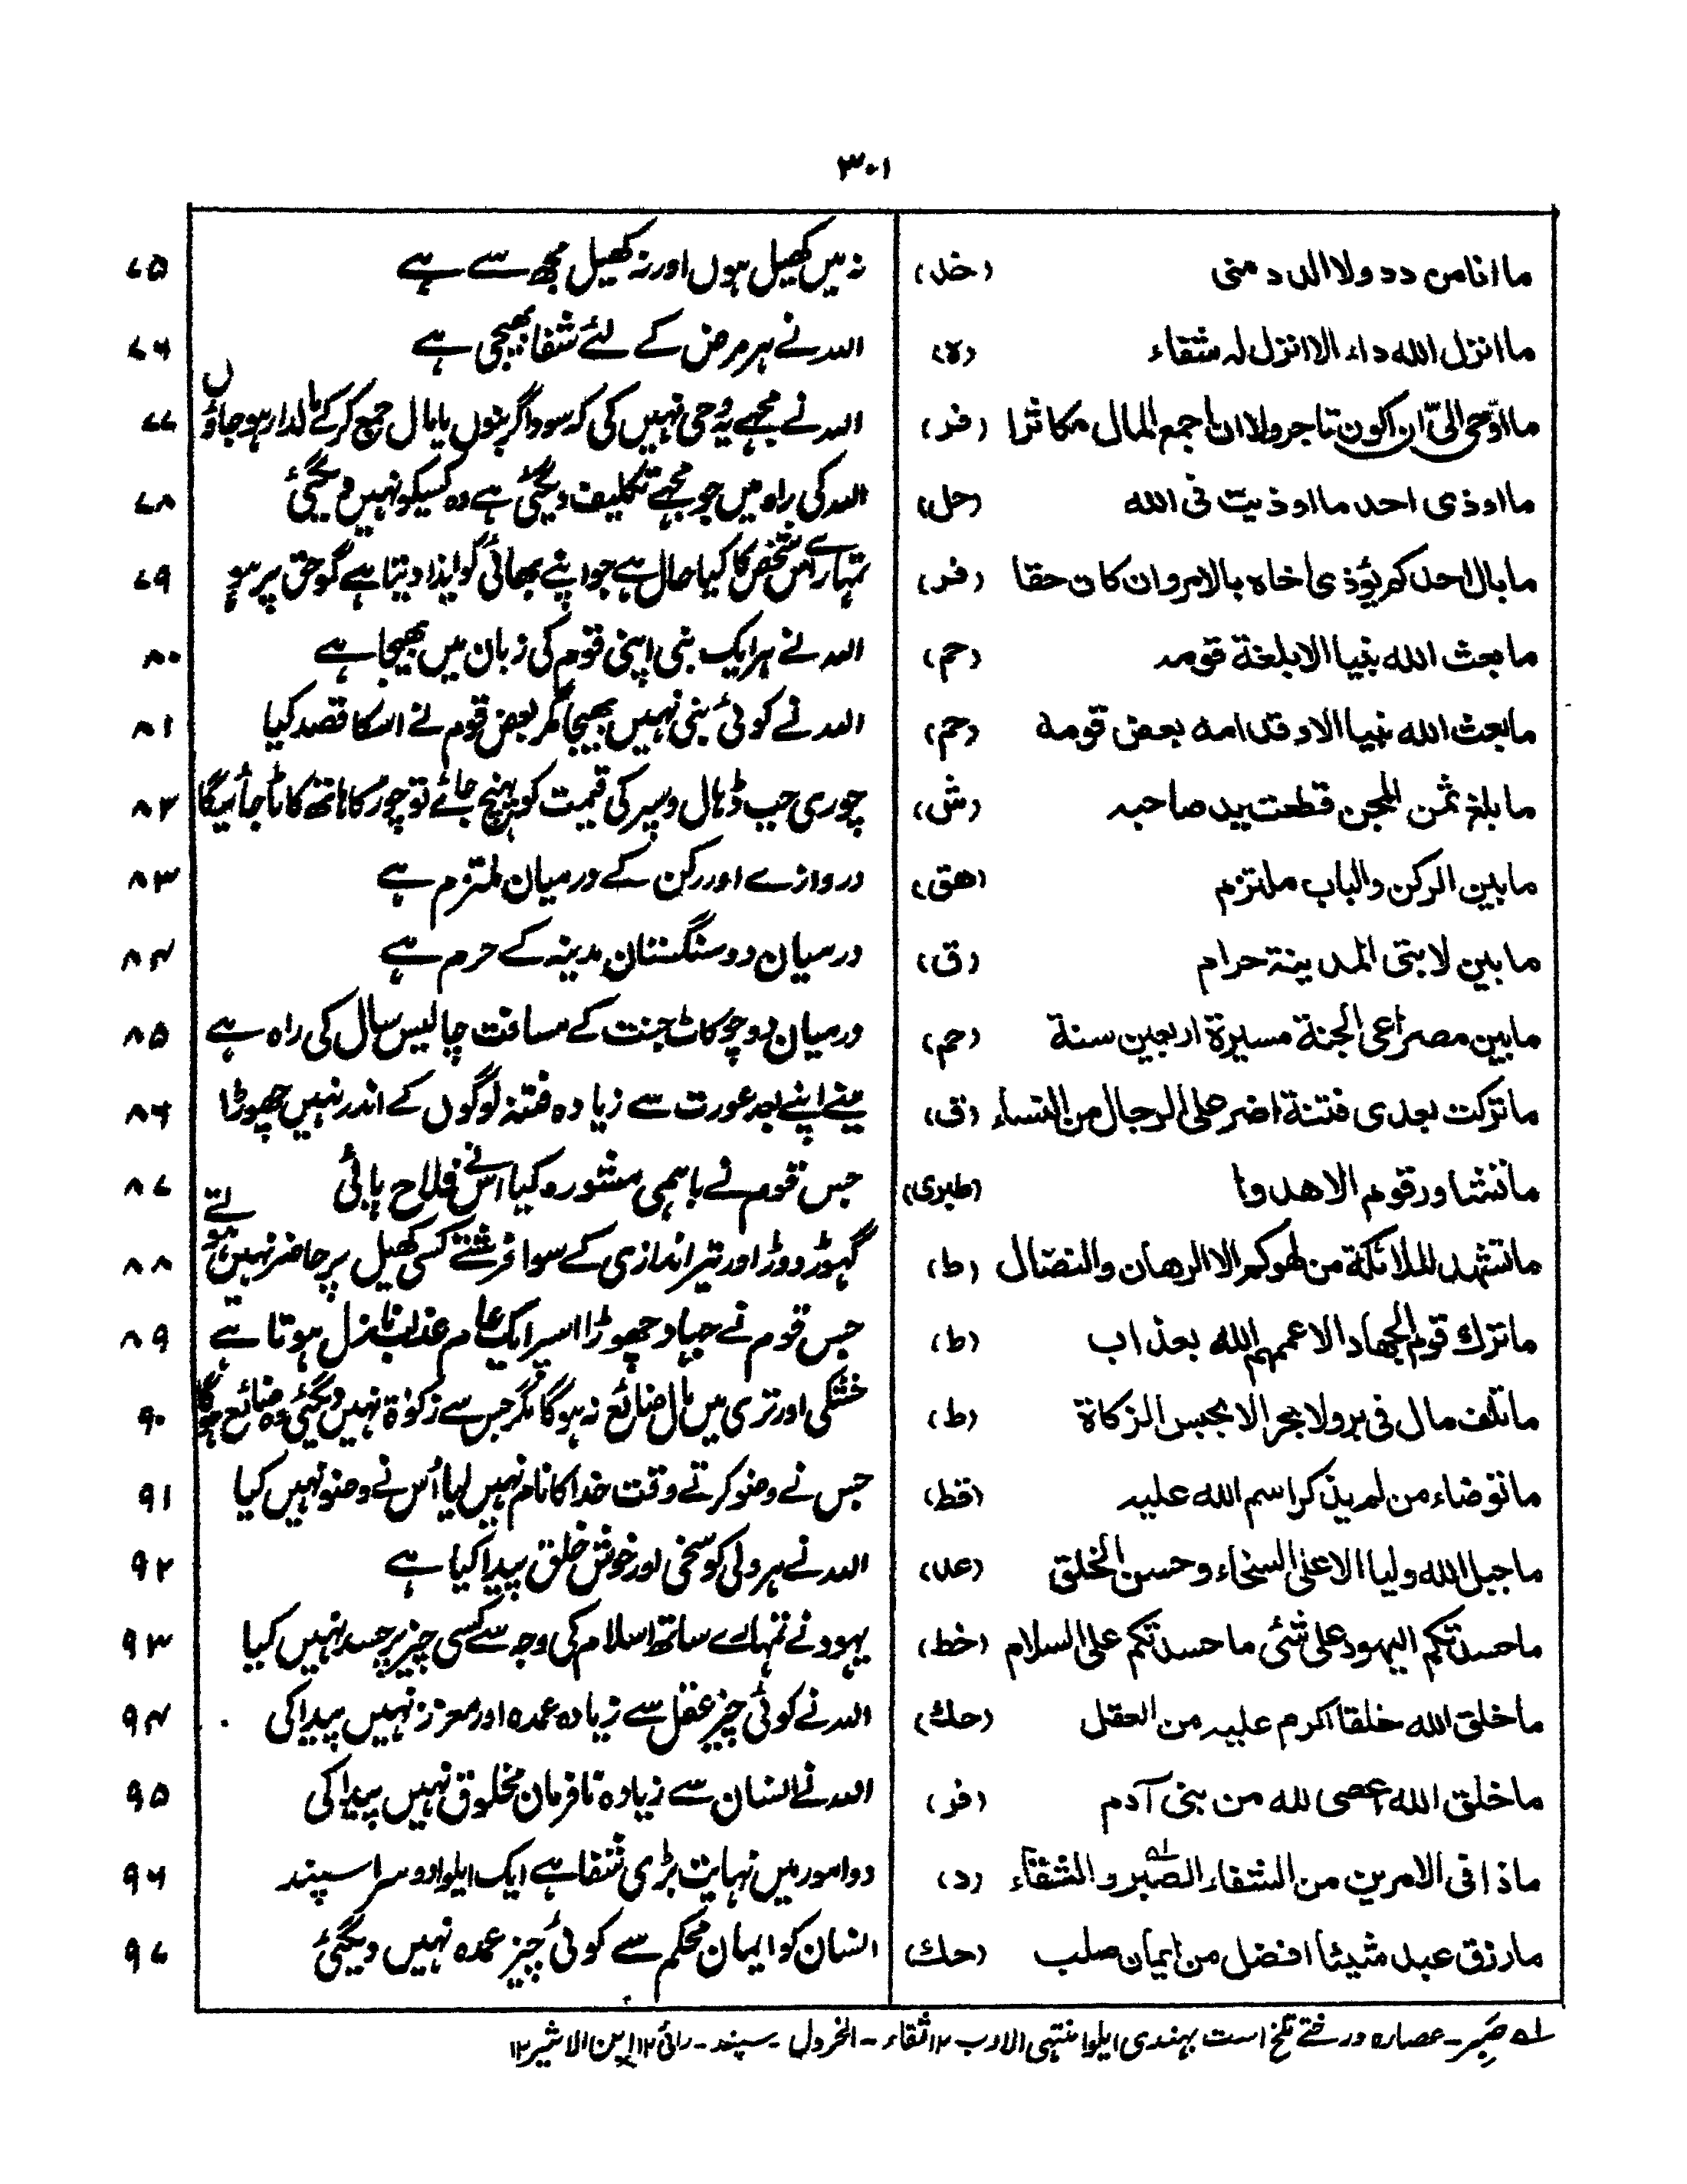 ٣٠١
ما انا من دد ولا الدد منى (خد) نہ میں کھیل ہوں اور نہ کھیل مجھ سے ہے ٧٥
ما انزل الله داء الا انزل لہ شفاء (ہ) اللہ نے ہر مرض کے لئے شفا بھیجی ہے ٧٦
ما اوحی الیّ ان اکون تاجر ولا ان اجمع المال مکاثرا (فر) اللہ نے مجھے یہ وحی نہیں کی کہ سوداگر بنوں یا مال جمع کر کے مالدار ہو جاؤں ٧٧
ما اوذی احد ما اوذیت فی الله (حل) اللہ کی راہ میں جو مجھے تکلیف دیگئی ہے وہ کسیکو نہیں دیگئی ٧٨
ما بال احدکم یؤذی اخاہ بالامر وان کان حقا (فر) تمہارے اس شخص کا کیا حال ہے جو اپنے بھائی کو ایذا دیتا ہے گو حق پر ہو ٧٩
ما بعث الله نبیا الا بلغة قومہ (حم) اللہ نے ہر ایک نبی اپنی قوم کی زبان میں بھیجا ہے ٨٠
ما بعث الله نبیا الا وقد امه بعض قومه (حم) اللہ نے کوئی نبی نہیں بھیجا مگر بعض قوم نے اسکا قصد کیا ٨١
ما بلغ ثمن المجن قطعت ید صاحبہ (ش) چوری جب ڈہال و سپر کی قیمت کو پہنچ جائے تو چور کا ہاتھ کاٹا جائیگا ٨٢
ما بین الرکن والباب ملتزم (هق) دروازے اور رکن کے درمیان ملتزم ہے ٨٣
ما بین لابتی المدینة حرام (ق) درمیان دو سنگستان مدینہ کے حرم ہے ٨٤
ما بین مصراعی الجنة مسیرة اربعین سنة (حم) درمیان دو چوکاٹ جنت کے مسافت چالیس سال کی راہ ہے ٨٥
ما ترکت بعدی فتنة اضر علی الرجال من النساء (ق) مینے اپنے بعد عورت سے زیادہ فتنہ لوگوں کے اندر نہیں چھوڑا ٨٦
ما تشاور قوم الا هدوا (طبری) جس قوم نے باہمی مشورہ کیا اس نے فلاح پائی ٨٧
ما تشهد الملائکة من لهوکم الا الرهان والنضال (ط) گہوڑ دوڑ اور تیر اندازی کے سوا فرشتے کسی کھیل پر حاضر نہیں ہوتے ٨٨
ما ترك قوم الجهاد الا عممهم الله بعذاب (ط) جس قوم نے جہاد چھوڑا اسپر ایک عام عذاب نازل ہوتا ہے ٨٩
ما تلف مال فی بر ولا بحر الا بحبس الزکاة (ط) خشکی اور تری میں مال ضائع نہ ہوگا مگر جس سے زکوٰة نہیں دیگئی وہ ضائع ہوگا ٩٠
ما توضاء من لم یذکر اسم الله علیہ (قط) جس نے وضو کرتے وقت خدا کا نام نہیں لیا اُس نے وضو نہیں کیا ٩١
ما جبل الله ولیا الا علی السخاء وحسن الخلق (عد) اللہ نے ہر ولی کو سخی اور خوش خلق پیدا کیا ہے ٩٢
ما حسدتکم الیهود علی شئی ما حسدتکم علی السلام (خط) یہود نے تمہارے ساتھ اسلام کی وجہ سے کسی چیز پر حسد نہیں کیا ٩٣
ما خلق الله خلقا اکرم علیہ من العقل (حك) اللہ نے کوئی چیز عقل سے زیادہ عمدہ اور معزز نہیں پیدا کی ٩٤
ما خلق الله اعصی لله من بنی آدم (فر) اللہ نے انسان سے زیادہ نافرمان مخلوق نہیں پیدا کی ٩٥
ماذا فی الامرین من الشفاء الصبر والثفاء (د) دو امور میں نہایت بڑی شفا ہے ایک ایلوا دوسرا سپند ٩٦
ما رزق عبد شیئا افضل من ایمان صلب (حك) انسان کو ایمان محکم سے کوئی چیز عمدہ نہیں دیگئی ٩٧
لہ صَبِر ۔ عصارہ درختے تلخ است بہندی ایلوا منتہی الارب ١٢ ثفاء ۔ الخردل ۔ سپند ۔ رائی ١٢ ابن الاثیر ١٢